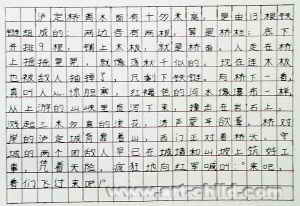 泸定桥离水面有十多米高，是由13根铁
链组成的：两边各有两根，算是桥栏；底下
并排9根，铺上木板，就是桥面。人走在桥
上摇摇晃晃，就像荡秋千似的，现在连木板
也被敌人抽掉了，只剩下铁链。向桥下一看，
真叫人心惊胆寒，红褐色的河水像瀑布一样，
从上游的山峡里直泻下来，撞击在岩石上，
溅起三米多高的浪花，涛声震耳欲聋。桥对
岸的泸定城背靠着山，西门正对着桥头。守
城的两个团敌人早已在城墙和山坡上筑好工
事，凭着天险，疯狂地向红军喊叫“来吧，
看你们飞过来吧！”